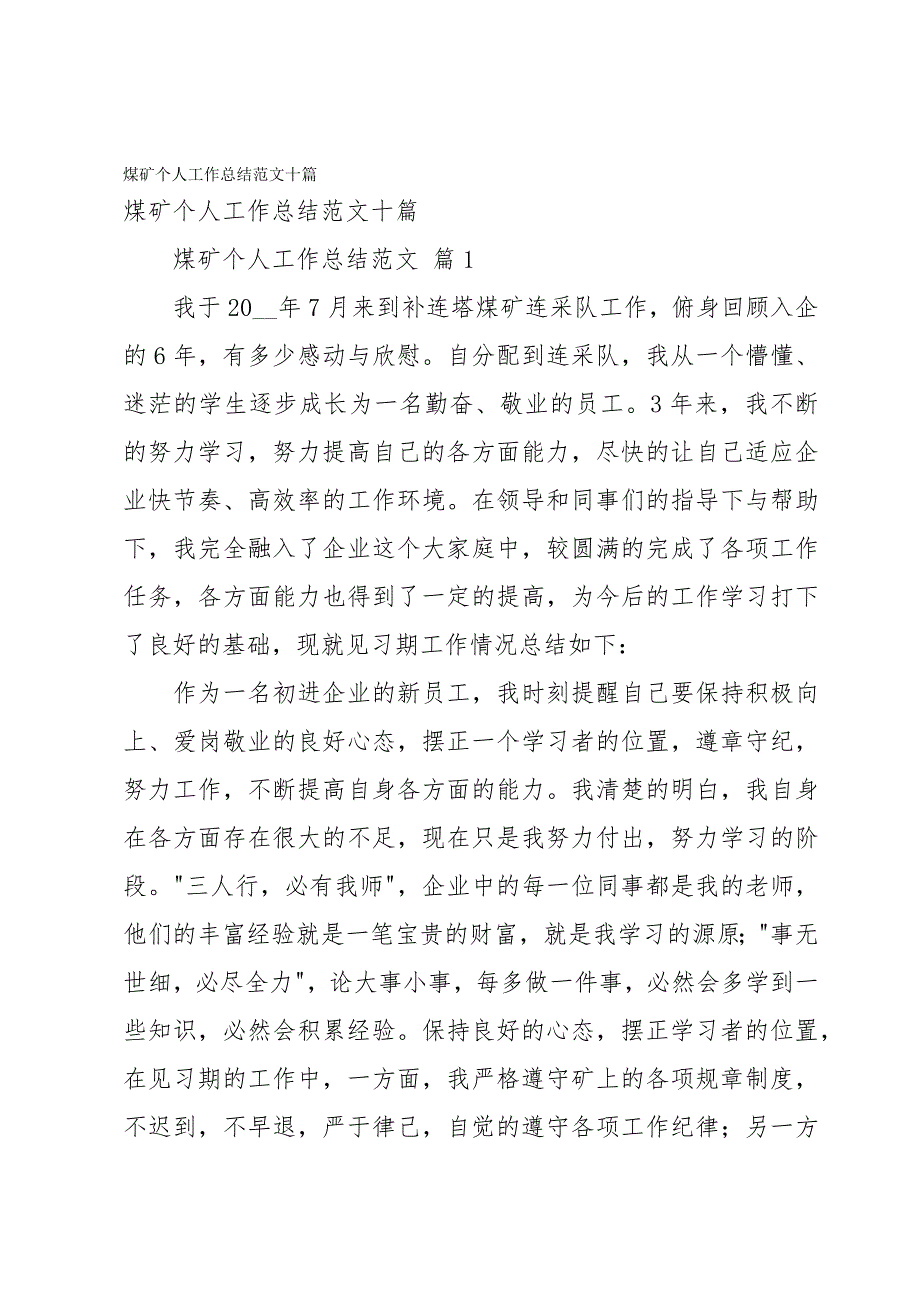 煤矿个人工作总结范文十篇
煤矿个人工作总结范文十篇
煤矿个人工作总结范文 篇1
我于20__年7月来到补连塔煤矿连采队工作，俯身回顾入企
的6年，有多少感动与欣慰。自分配到连采队，我从一个懵懂、
迷茫的学生逐步成长为一名勤奋、敬业的员工。3年来，我不断
的努力学习，努力提高自己的各方面能力，尽快的让自己适应企
业快节奏、高效率的工作环境。在领导和同事们的指导下与帮助
下，我完全融入了企业这个大家庭中，较圆满的完成了各项工作
任务，各方面能力也得到了一定的提高，为今后的工作学习打下
了良好的基础，现就见习期工作情况总结如下：
作为一名初进企业的新员工，我时刻提醒自己要保持积极向
上、爱岗敬业的良好心态，摆正一个学习者的位置，遵章守纪，
努力工作，不断提高自身各方面的能力。我清楚的明白，我自身
在各方面存在很大的不足，现在只是我努力付出，努力学习的阶
段。"三人行，必有我师"，企业中的每一位同事都是我的老师，
他们的丰富经验就是一笔宝贵的财富，就是我学习的源原；"事无
世细，必尽全力"，论大事小事，每多做一件事，必然会多学到一
些知识，必然会积累经验。保持良好的心态，摆正学习者的位置，
在见习期的工作中，一方面，我严格遵守矿上的各项规章制度，
不迟到，不早退，严于律己，自觉的遵守各项工作纪律；另一方